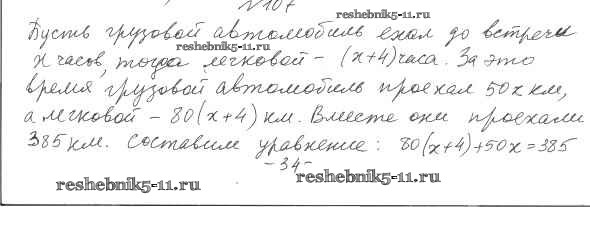 N 107
reshebnik5-11.ru
Пусть грузовой автомобиль ехал до встречи
reshebnik5-11.ru
x часов, тогда легковой – (x+4) часа. За это
время грузовой автомобиль проехал 50x км,
а легковой – 80(x+4) км. Вместе они проехали
385 км. Составим уравнение: 80(x+4)+50x=385
-34-
reshebnik5-11.ru
reshebnik5-11.ru